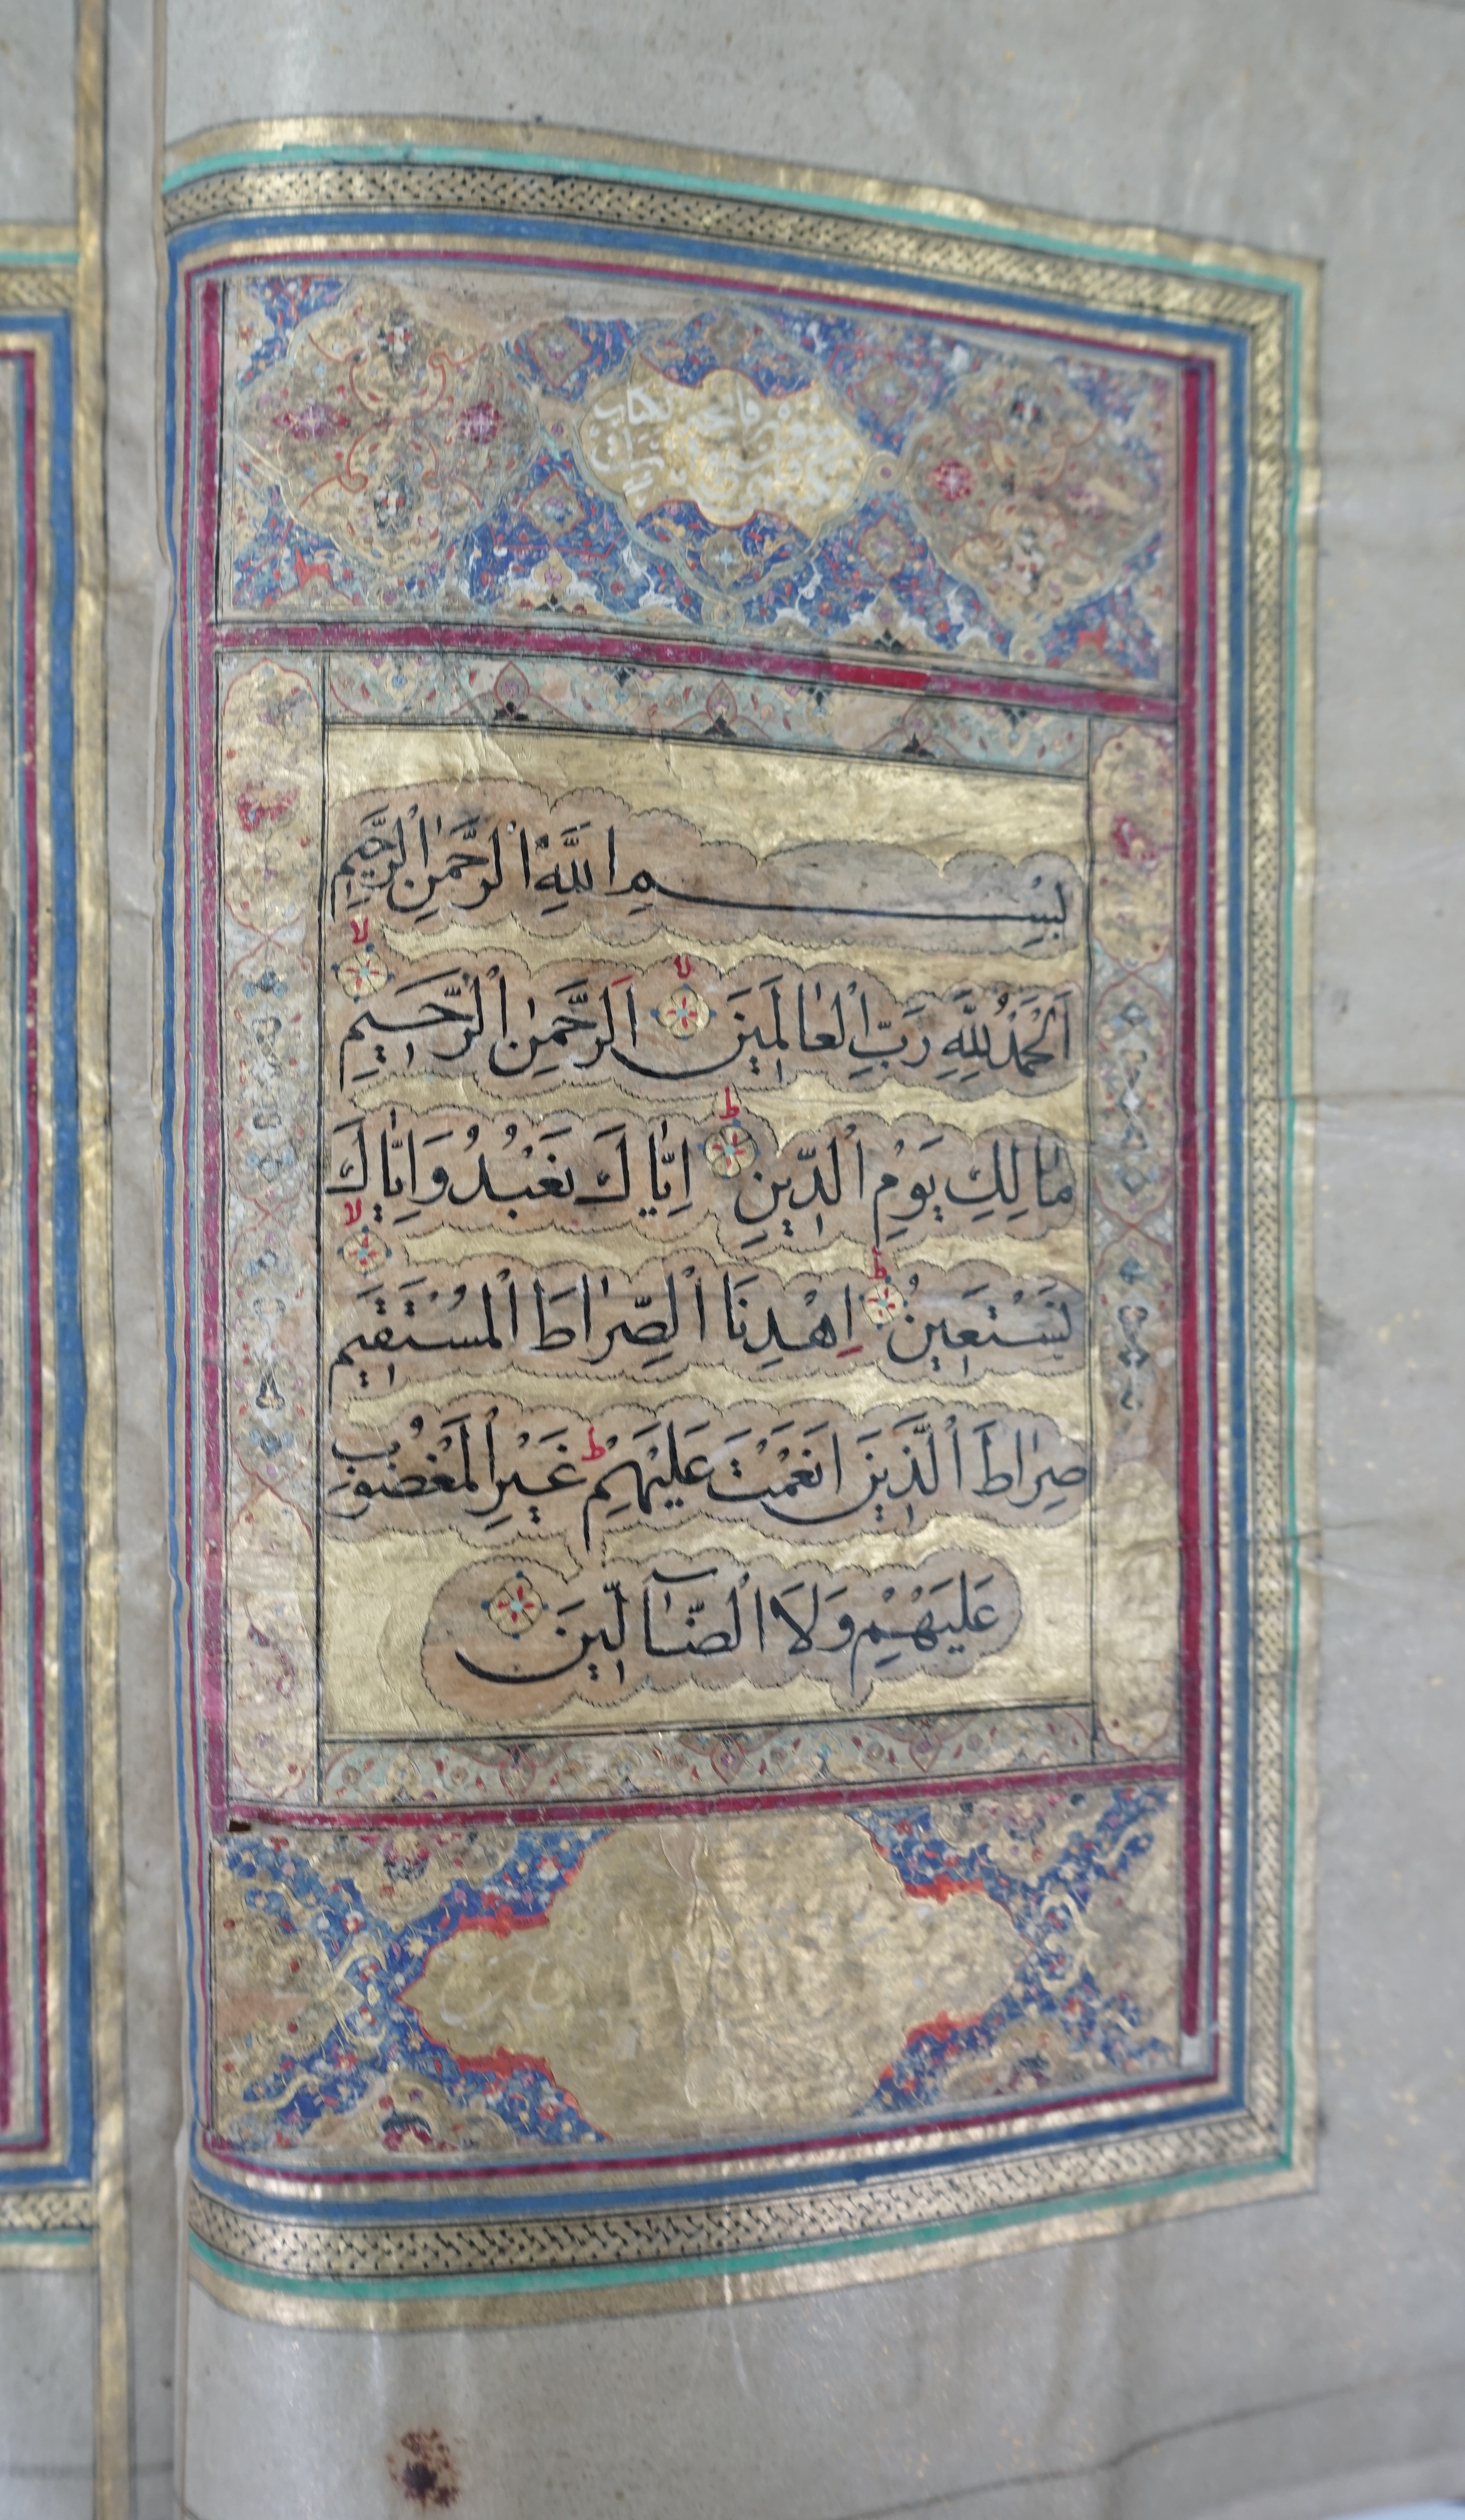 سورة فاتحة الكتاب
بِسْمِ اللَّهِ الرَّحْمٰنِ الرَّحِيمِ
اَلْحَمْدُ لِلَّهِ رَبِّ الْعٰالَمِينَ لا اَلرَّحْمٰنِ الرَّحِيمِ لا
مٰالِكِ يَوْمِ الدِّينِ ط اِيّٰاكَ نَعْبُدُ وَاِيّٰاكَ
نَسْتَعِينُ ط اِهْدِنَا الصِّرٰاطَ الْمُسْتَقِيمَ لا
صِرٰاطَ الَّذِينَ اَنْعَمْتَ عَلَيْهِمْ ط غَيْرِ الْمَغْضُوبِ
عَلَيْهِمْ وَلَا الضّٰآلِّينَ